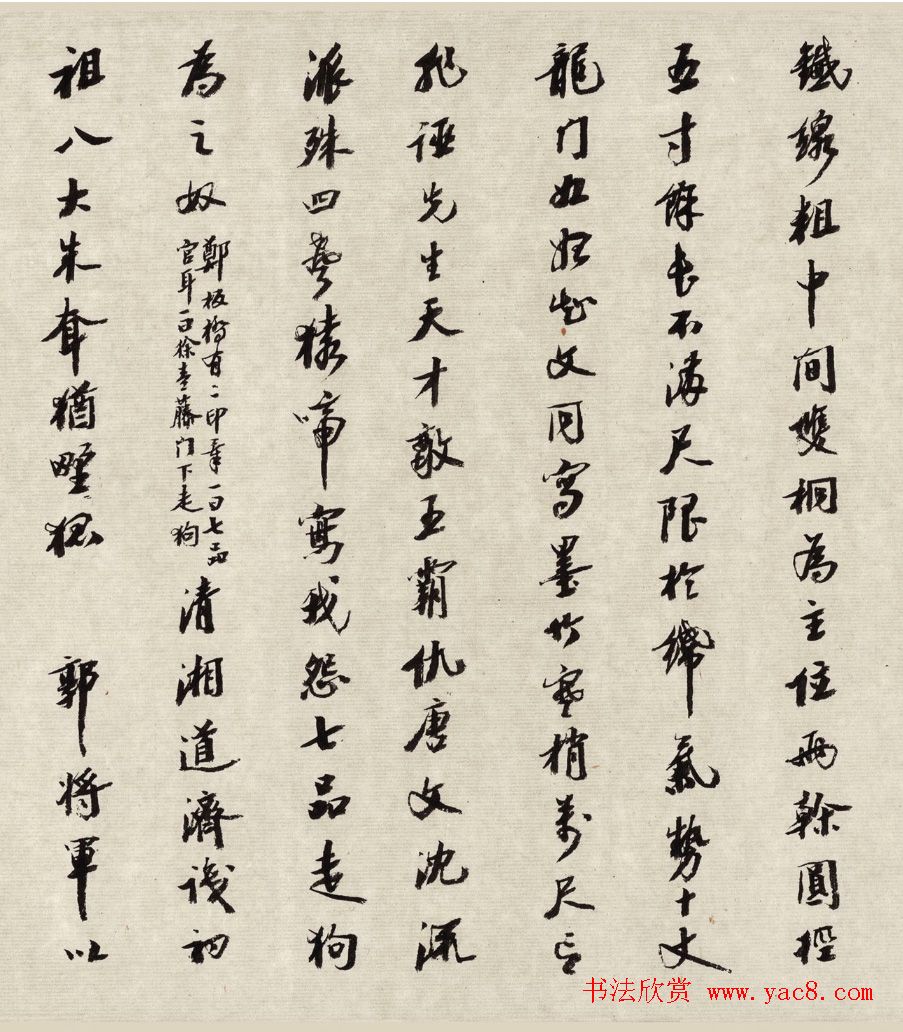 鐵線粗中間雙桐為主住兩榦圓徑
五寸餘長不滿尺限於縑氣勢十丈
龍門如妬文同寫墨竹寒梢萬尺
非誣先生天才敵五霸仇唐文沈派
派殊四猿啼寫我怨七品走狗
為之奴
鄭板橋有二印章一曰七品
官耳一曰徐青藤門下走狗
清湘道濟謨初
祖八大朱耷猶野狐
郭將軍以
书法欣赏 www.yac8.com